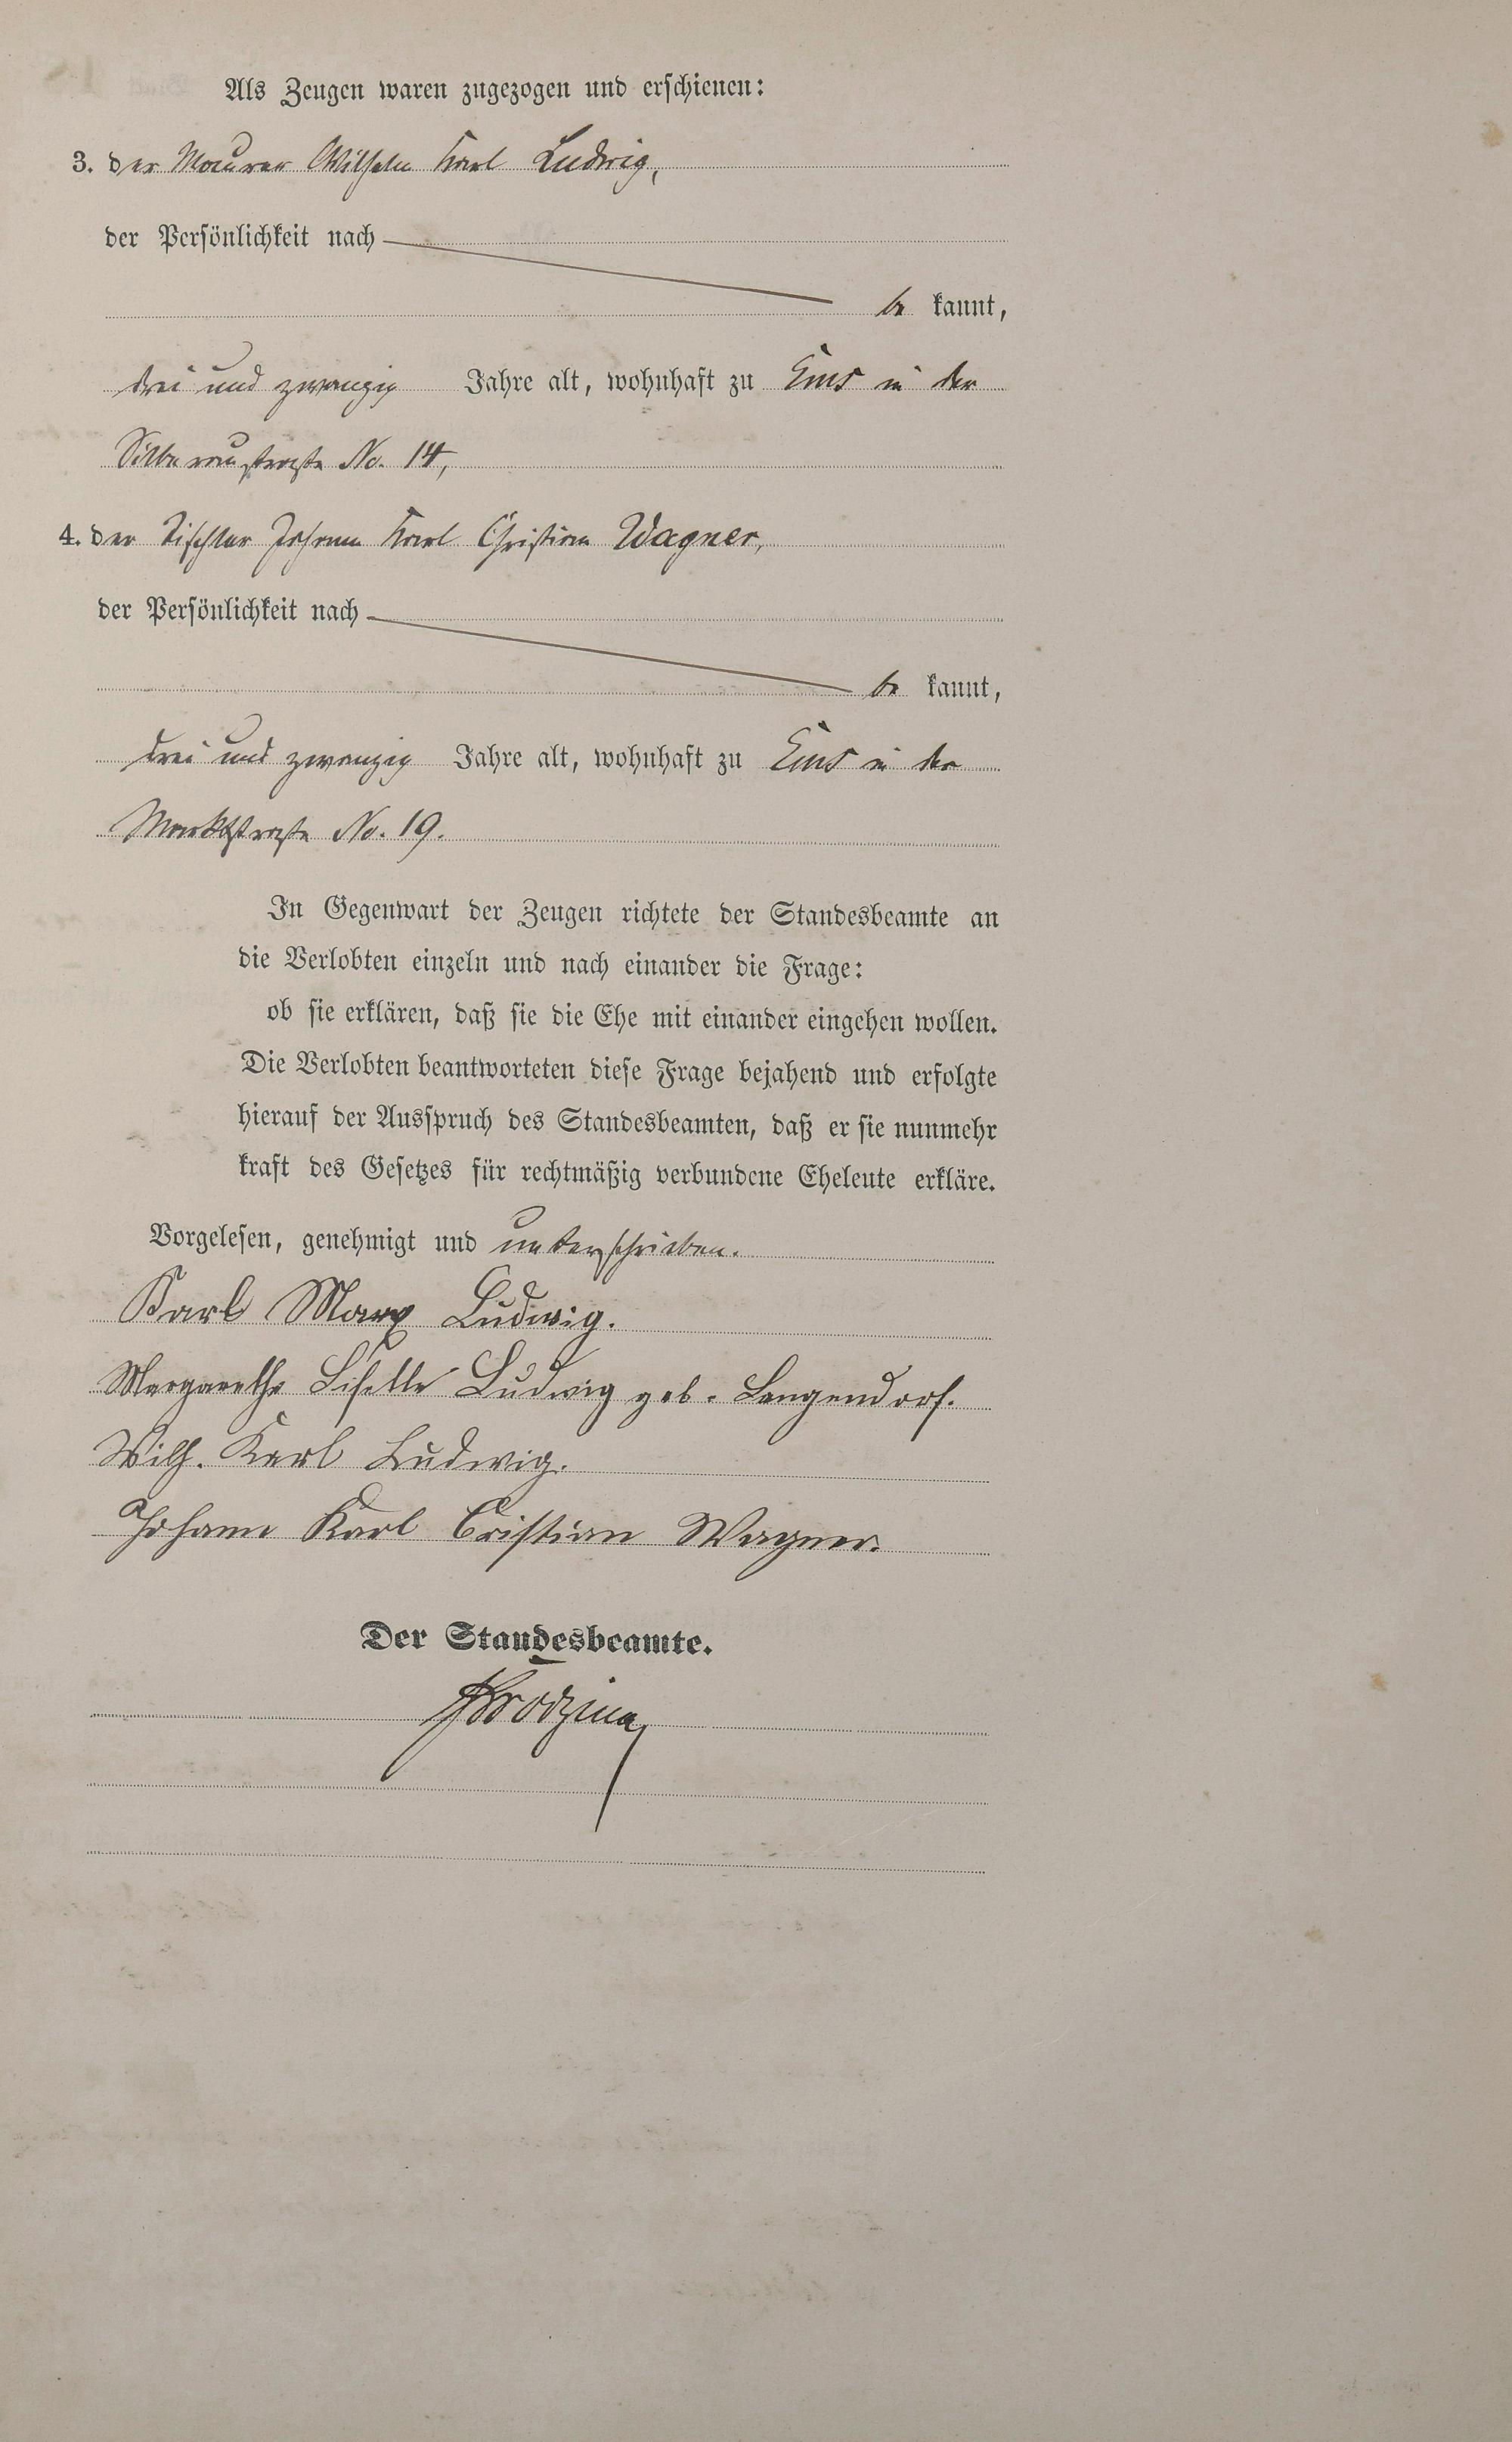 Als Zeugen waren zugezogen und erschienen:
3. der Maurer Wilhelm Karl Ludwig,
der Persönlichkeit nach
be kannt,
drei und zwanzig Jahre alt, wohnhaft zu Ems in der
Silberaustraße No. 14,
4. der Tischler Johann Karl Christian Wagner,
der Persönlichkeit nach
be kannt,
drei und zwanzig Jahre alt, wohnhaft zu Ems in der
Marktstraße No. 19.
In Gegenwart der Zeugen richtete der Standesbeamte an
die Verlobten einzeln und nach einander die Frage:
ob sie erklären, daß sie die Ehe mit einander eingehen wollen.
Die Verlobten beantworteten diese Frage bejahend und erfolgte
hierauf der Ausspruch des Standesbeamten, daß er sie nunmehr
kraft des Gesetzes für rechtmäßig verbundene Eheleute erkläre.
Vorgelesen, genehmigt und unterschrieben.
Karl Marx Ludwig.
Margarethe Lisette Ludwig geb. Langendorf.
Wilh. Karl Ludwig.
Johann Karl Cristian Wagner.
Der Standesbeamte.